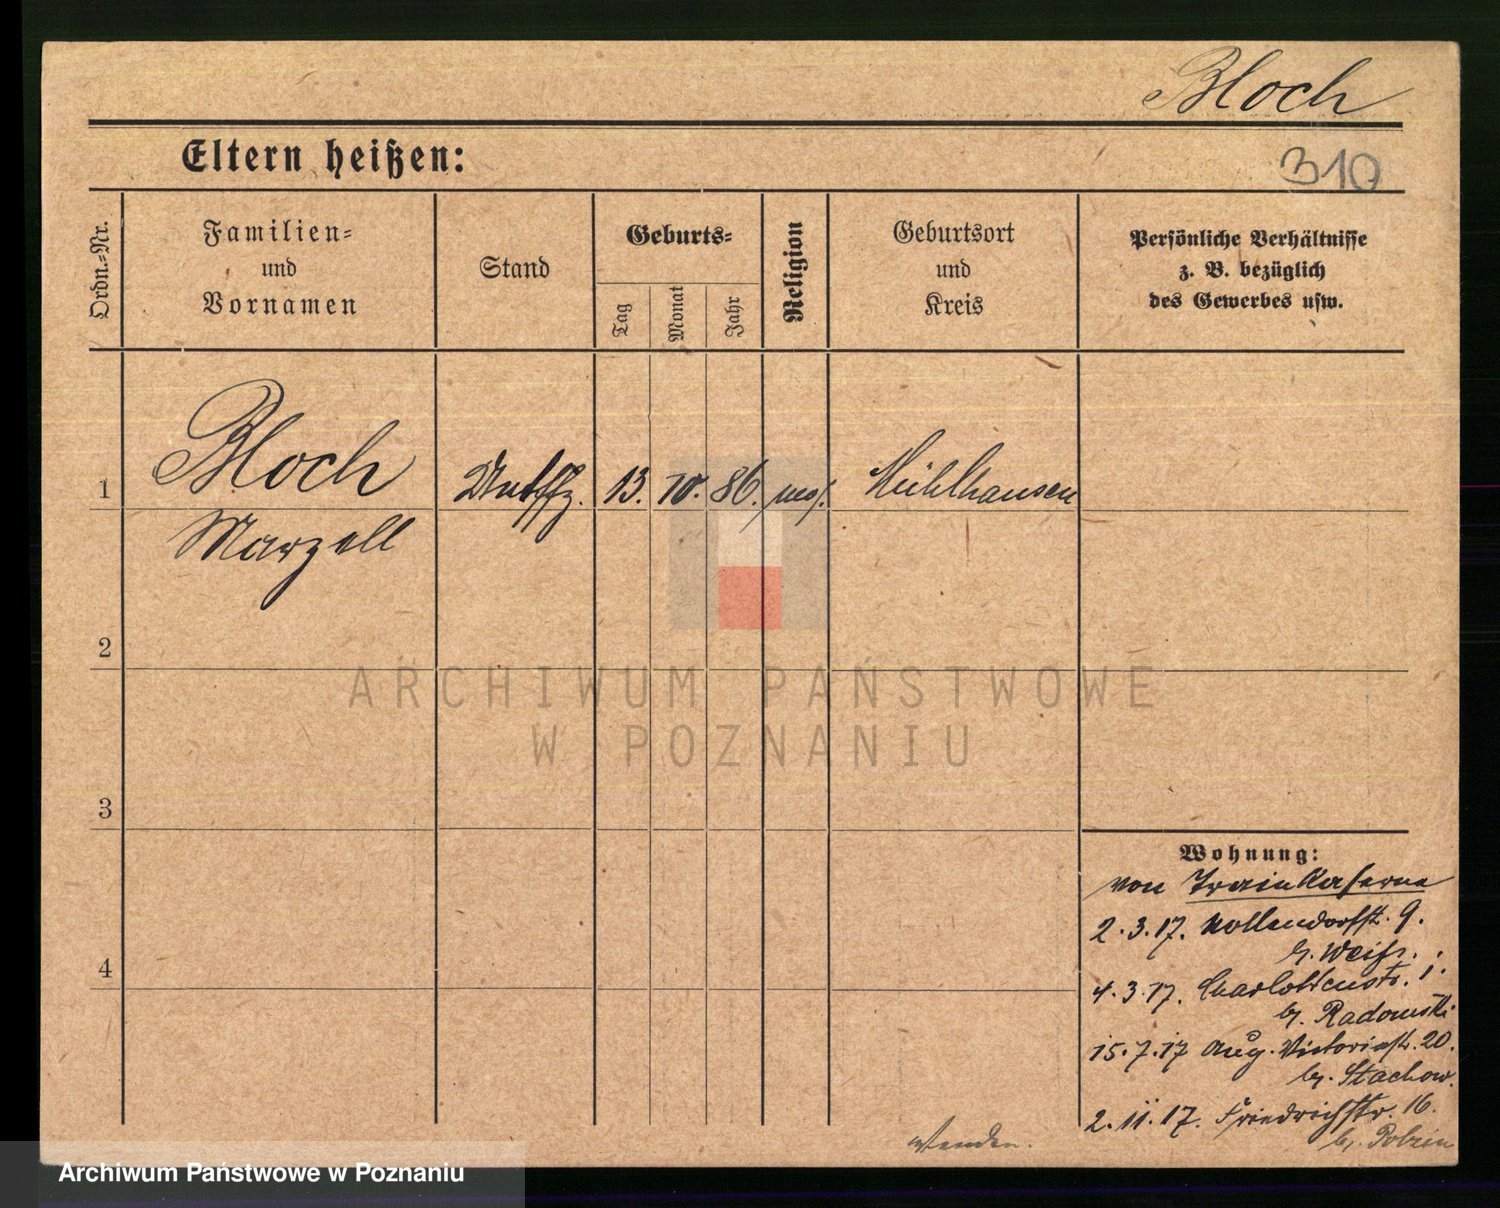 Bloch
Eltern heißen:
310
Ordn.-Nr.
Familien-
und
Vornamen
Stand
Geburts-
Tag
Monat
Jahr
Religion
Geburtsort
und
Kreis
Persönliche Verhältnisse
z. B. bezüglich
des Gewerbes usw.
1
Bloch
Marzell
Untffz.
13.
10.
86.
mos.
Mühlhausen
2
3
4
Wohnung:
von Trainkaserne
2.3.17. Nollendorfstr. 9.
b. Weiß.
4.3.17. Charlottenstr. 1.
b. Radomski
15.7.17 Aug. Victoriastr. 20.
b. Stachow.
2.11.17. Friedrichstr. 16.
b.
wenden.
ARCHIWUM PAŃSTWOWE
W POZNANIU
Archiwum Państwowe w Poznaniu